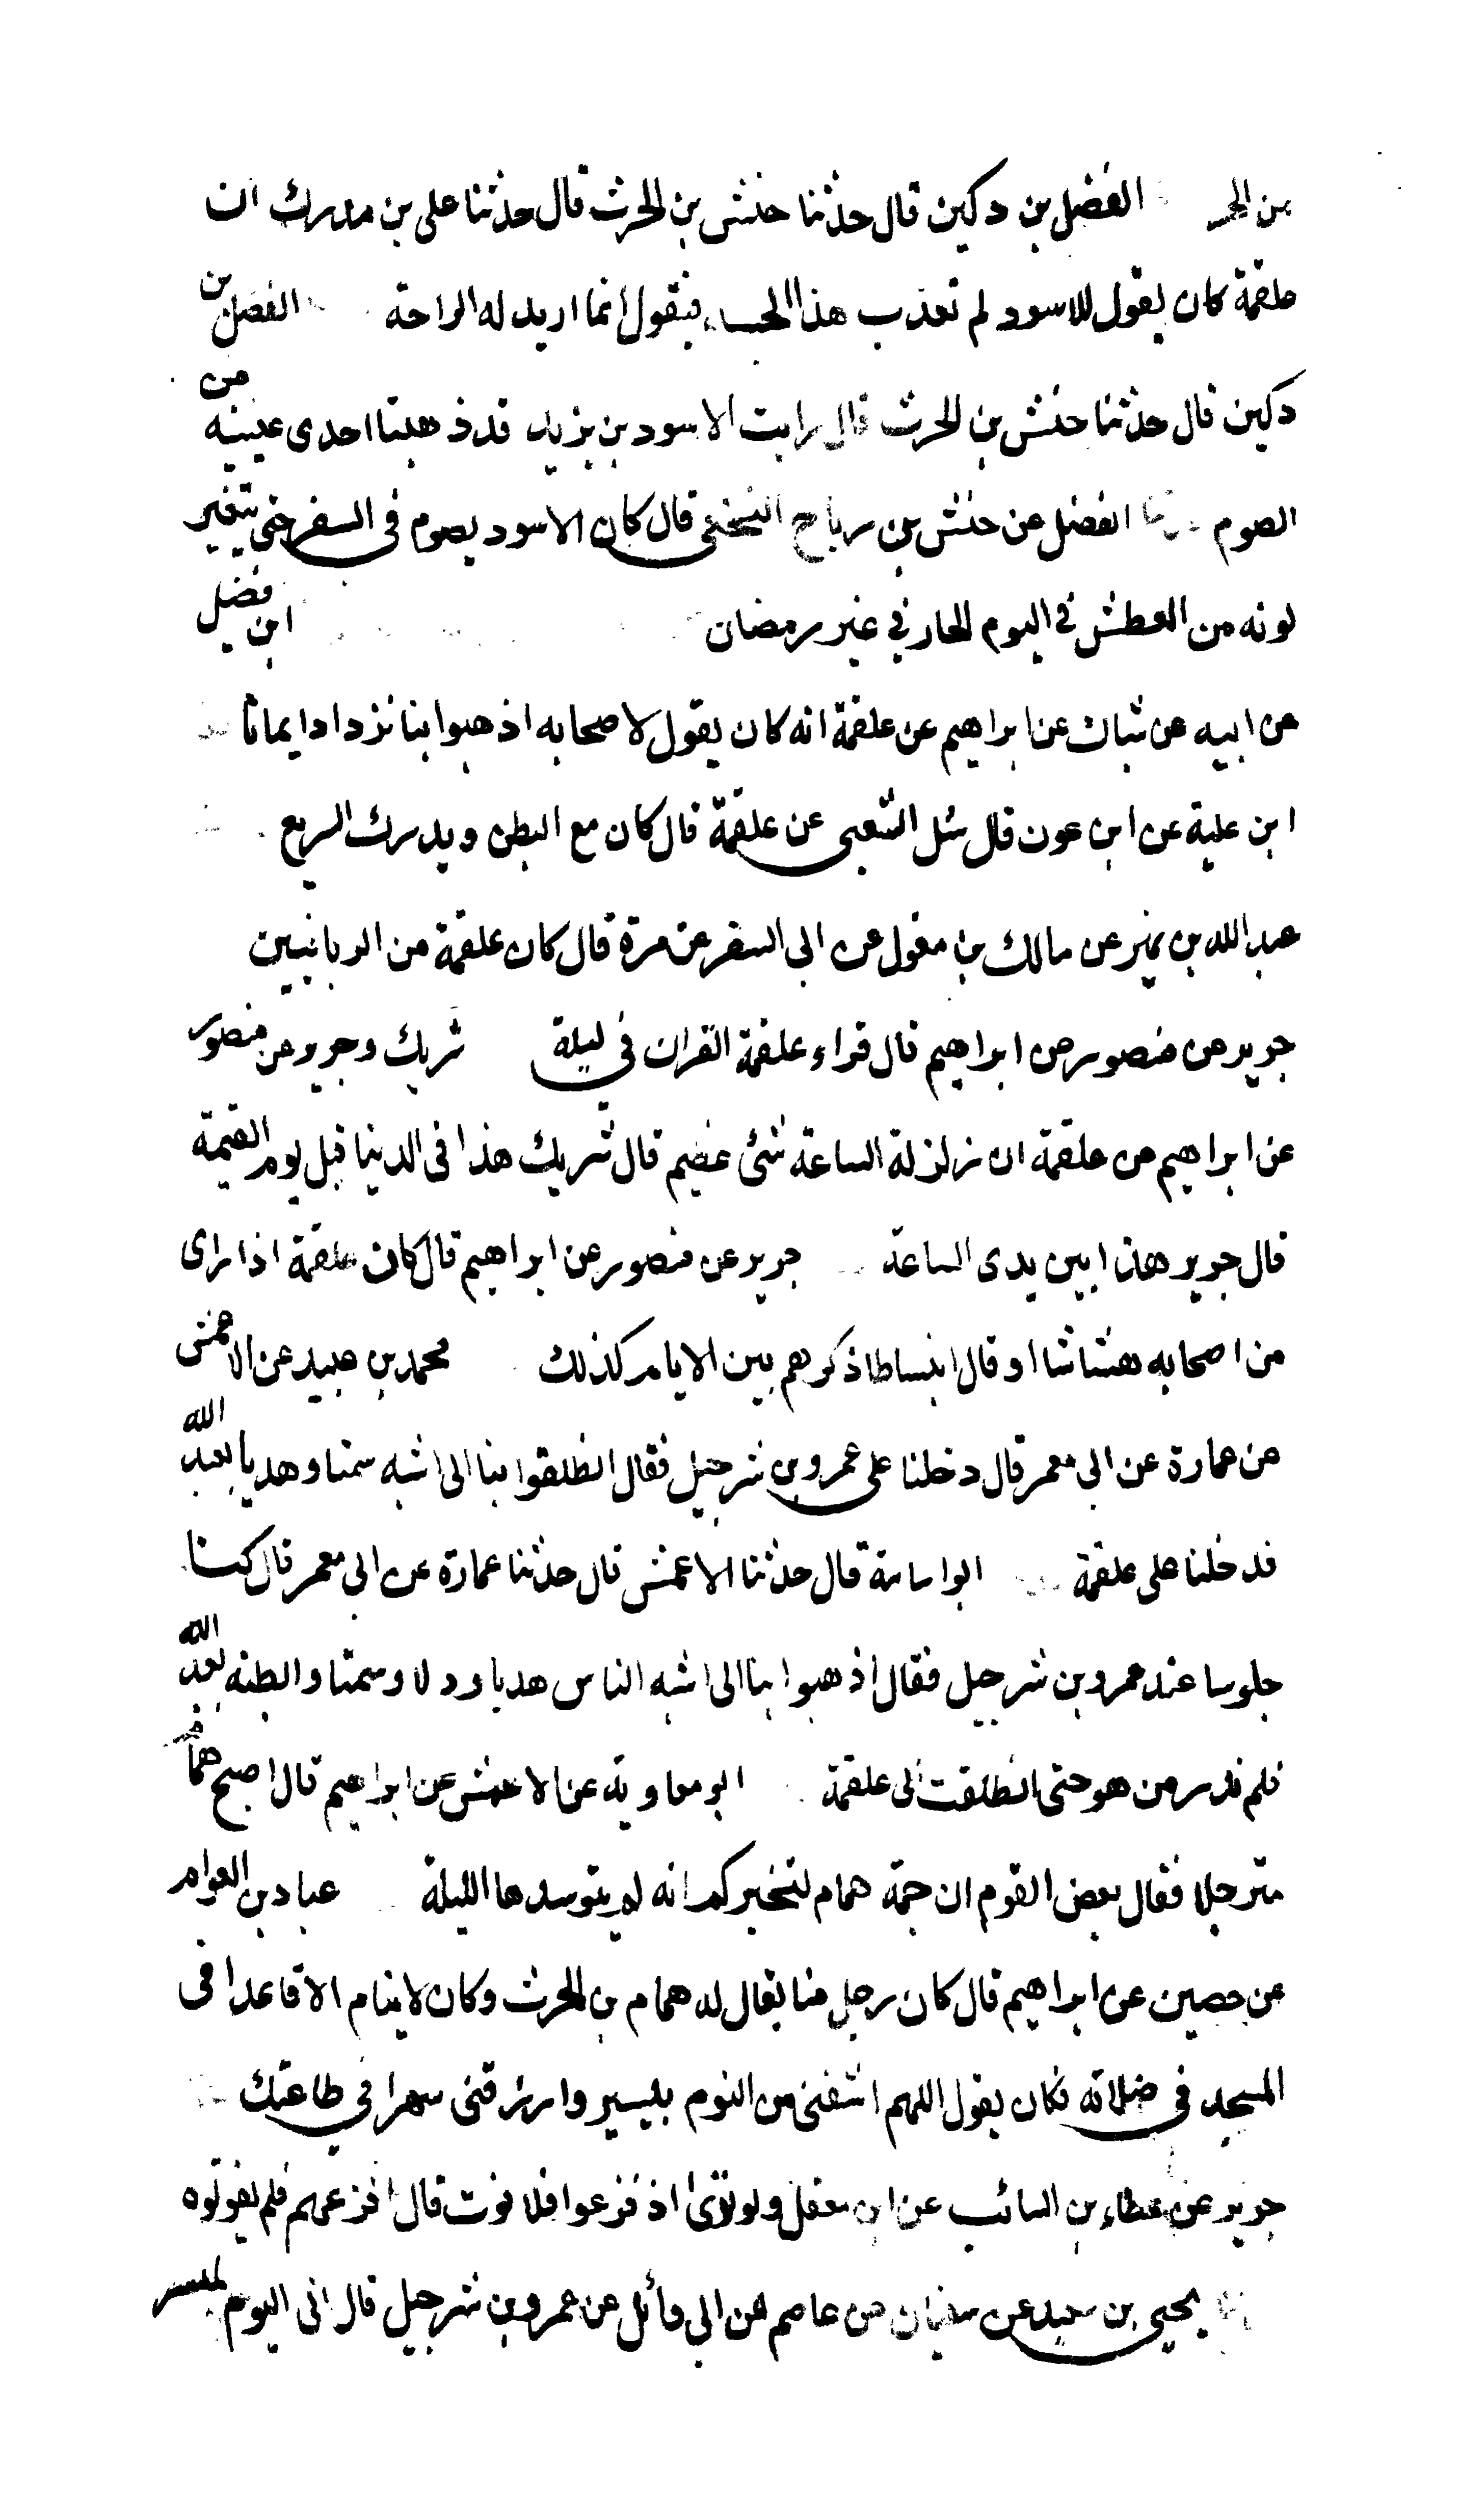 من الحر الفضل بن دكين قال حدثنا حنش بن الحرث قال حدثنا على بن مدرك ان
علقمة كان يقول للاسود لم تعذب هذا الجسد فيقول انما اريد له الراحة الفضل بن
دكين قال حدثنا حنش بن الحرث قال رايت الاسود بن يزيد قد ذهبت احدى عينيه من
الصوم الفضل عن حنش بن رياح النخعى قال كان الاسود يصوم فى السفر حتى يتغير
لونه من العطش فى اليوم الحار في غير رمضان ابن فضيل
عن ابيه عن شباك عن ابراهيم عن علقمة انه كان يقول لاصحابه اذهبوا بنا نزداد ايمانا
ابن علية عن ابن عون قال سئل الشعبى عن علقمة قال كان مع البطى ويدرك السريع
عبد الله بن نمير عن مالك بن مغول عن ابى السفر عن مرة قال كان علقمة من الربانيين
جرير عن منصور عن ابراهيم قال قراء علقمة القران في ليلة شريك وجرير عن منصور
عن ابراهيم عن علقمة ان زلزلة الساعة شئ عضيم قال شريك هذا فى الدنيا قبل يوم القيمة
قال جرير هذا بين يدى الساعة جرير عن منصور عن ابراهيم قال كان علقمة اذا راى
من اصحابه هشاشا او قال انبساطا ذكرهم بين الايام كذلك محمد بن عبيد عن الاعمش
عن عمارة عن ابى معمر قال دخلنا على عمرو بن شرحبيل فقال انطلقوا بنا الى اشبه سمتا وهديا بعبد الله
فدخلنا على علقمة ابو اسامة قال حدثنا الاعمش قال حدثنا عمارة عن ابى معمر قال كنا
جلوسا عند عمرو بن شرحبيل فقال اذهبوا بنا الى اشبه الناس هديا ودلا وسمتا والطنه بعبد الله
فلم ندر من هو حتى انطلقت الى علقمة ابو معاوية عن الاعمش عن ابراهيم قال اصبح همام
مترجلا فقال بعض القوم ان جمة همام لتخبركم انه لم يتوسدها الليلة عباد بن العوام
عن حصين عن ابراهيم قال كان رجل منا يقال له همام بن الحرث وكان لا ينام الا قاعدا فى
المسجد فى صلاته فكان يقول اللهم اشفنى من النوم بيسير وارزقنى سهرا في طاعتك
جرير عن عطاء بن السائب عن ابن معقل ولو ترى اذ فزعوا فلا فوت قال افزعهم فلم يفوتوه
يحيى بن سعيد عن سفيان عن عاصم عن ابى وائل عن عمرو بن شرحبيل قال انى اليوم لميسر